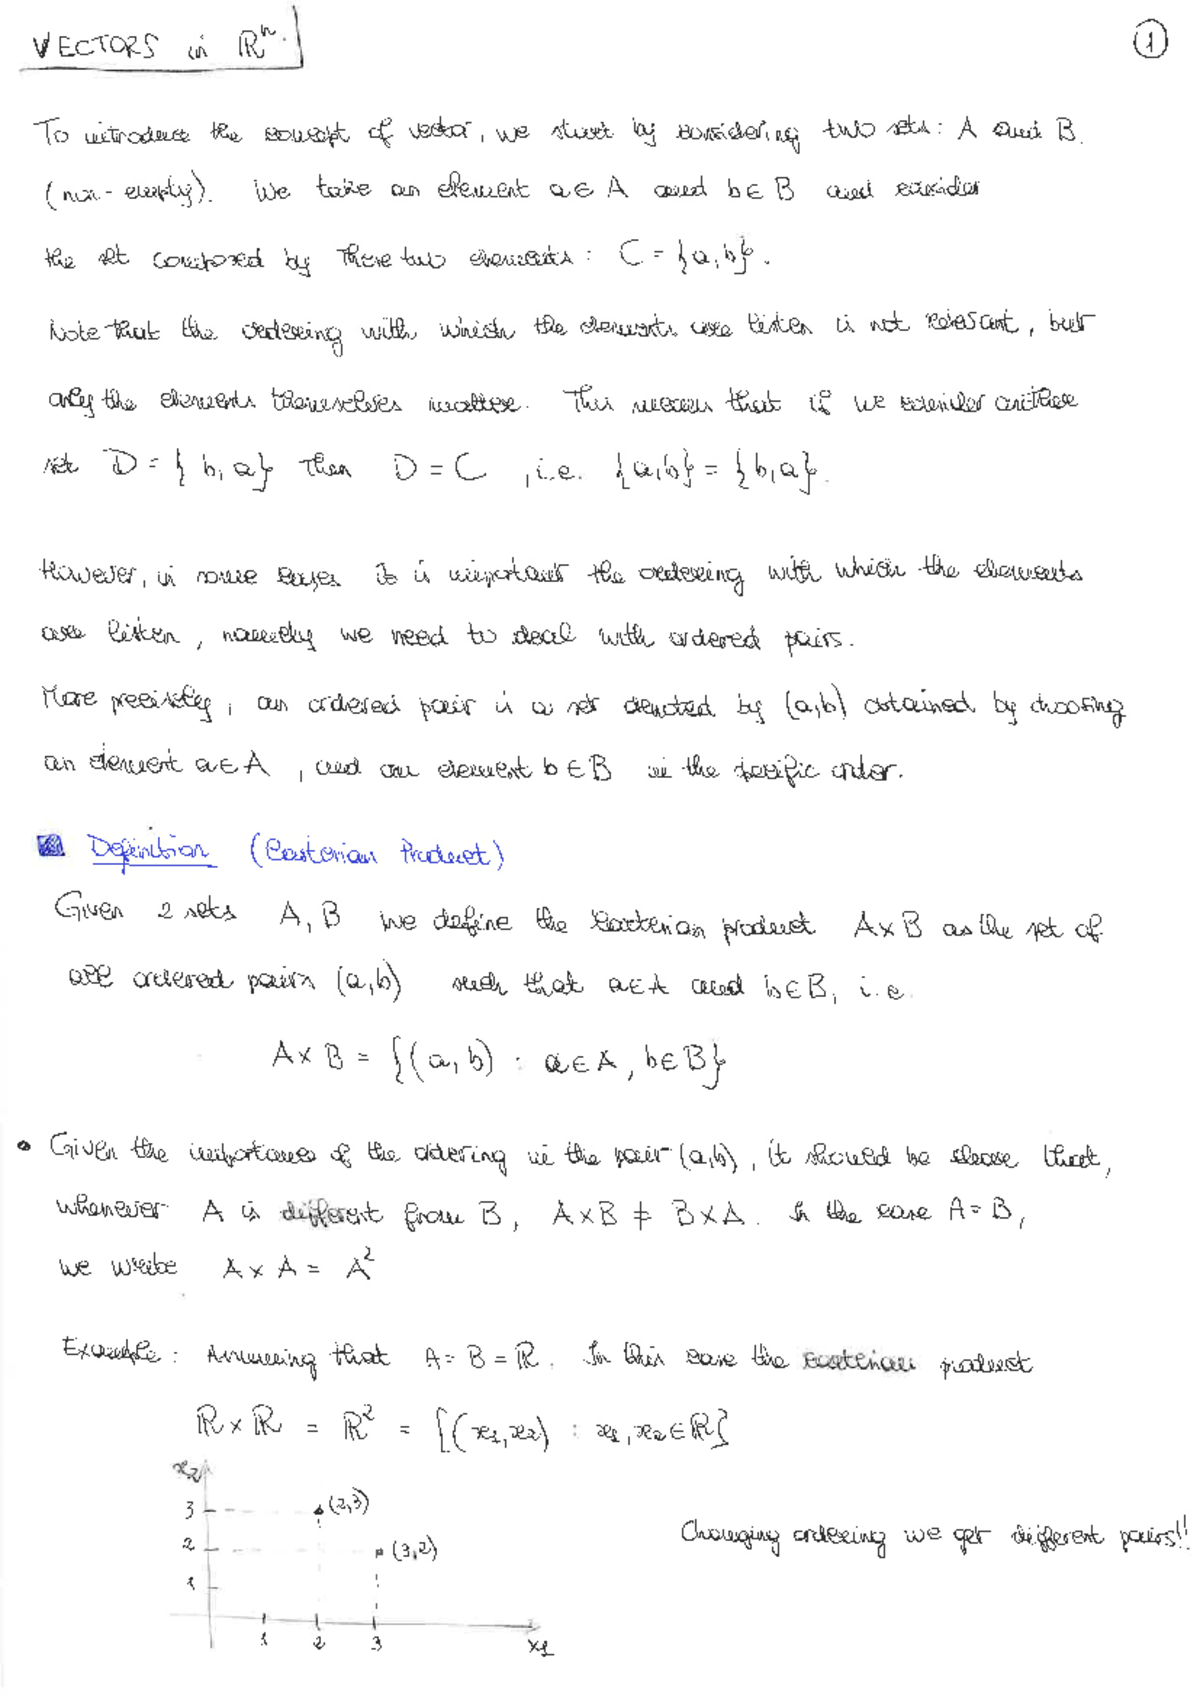 VECTORS in ℝⁿ.
1
To introduce the concept of vector, we start by considering two sets: A and B.
(non-empty). We take an element a∈A and b∈B and consider
the set composed by these two elements: C = {a,b}.
Note that the ordering with which the elements are listen is not relevant, but
only the elements themselves matter. This means that if we consider another
set D = {b,a} then D = C, i.e. {a,b} = {b,a}.
However, in some cases it is important the ordering with which the elements
are listen, namely we need to deal with ordered pairs.
More precisely, an ordered pair is a set denoted by (a,b) obtained by choosing
an element a∈A, and an element b∈B in the specific order.
Definition (Cartesian Product)
Given 2 sets A, B we define the Cartesian product A×B as the set of
all ordered pairs (a,b) such that a∈A and b∈B, i.e.
A×B = {(a,b) : a∈A, b∈B}
• Given the importance of the ordering in the pair (a,b), it should be clear that,
whenever A is different from B, A×B ≠ B×A. In the case A=B,
we write A×A = A²
Example: Assuming that A=B=ℝ. In this case the cartesian product
ℝ×ℝ = ℝ² = {(x₁,x₂) : x₁,x₂∈ℝ}
x₂
3 (2,3)
2 (3,2)
1
Changing ordering we get different pairs!!
1 2 3 x₁